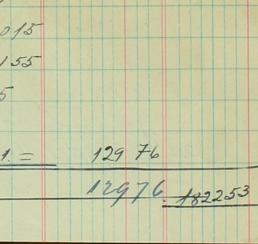 015
155
5
1. = 129 76
12976. 182253